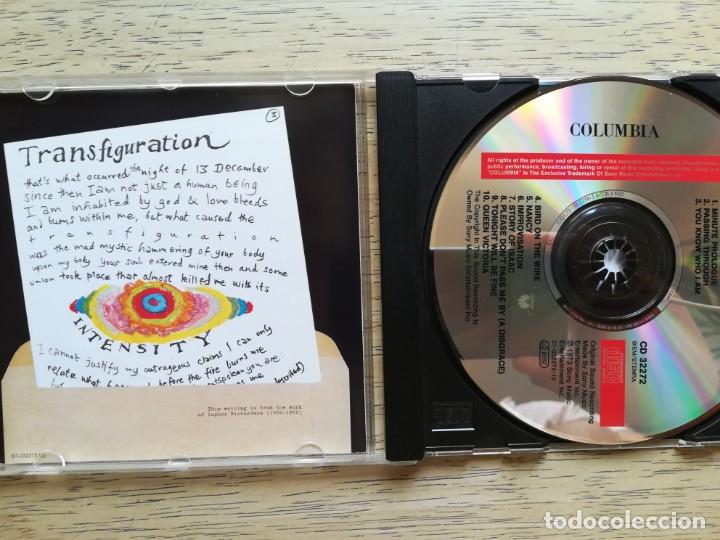 3
Transfiguration
that's what occurred the night of 13 December
since then I am not just a human being
I am inhabited by god & love bleeds
and burns within me, but what caused the
transfiguration
was the mad mystic hammering of your body
upon my body your soul entered mine then and some
union took place that almost killed me with its
INTENSITY
I cannot justify my outrageous claims I can only
before the fire burns me
This writing is from the work
of Daphne Richardson (1939-1972)
COLUMBIA
All rights of the producer and of the owner of the recorded work reserved.
public performance, broadcasting, hiring or rental of this recording prohibited.
"COLUMBIA" is The Exclusive Trademark Of Sony Music Entertainment Inc.
1. MINUTE PROLOGUE
2. PASSING THROUGH
3. YOU KNOW WHO I AM
4. BIRD ON THE WIRE
5. NANCY
6. IMPROVISATION
7. STORY OF ISAAC
8. PLEASE DON'T PASS ME BY (A DISGRACE)
9. TONIGHT WILL BE FINE
10. QUEEN VICTORIA
The Copyright In This Sound Recording Is
Owned By Sony Music Entertainment Inc.
CD 32272
BIEM/STEMRA
COMPACT
disc
DIGITAL AUDIO
Original Sound Recording
Made By Sony Music
Entertainment Inc.
℗ 1973 Sony Music
Entertainment Inc.
01-032272-10
todocoleccion
todocoleccion.net